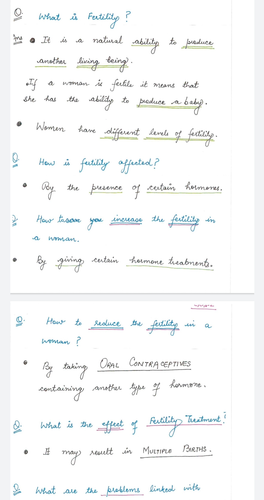 Q. What is Fertility?
Ans • It is a natural ability to produce
another living being.
• If a woman is fertile it means that
she has the ability to produce a baby.
• Women have different levels of fertility.
Q. How is fertility affected?
• By the presence of certain hormones.
Q. How you increase the fertility in
a woman.
• By giving certain hormone treatments.
Q. How to reduce the fertility in a
woman?
• By taking ORAL CONTRACEPTIVES
containing another type of hormone.
Q. What is the effect of Fertility Treatment?
• It may result in MULTIPLE BIRTHS.
Q. What are the problems linked with